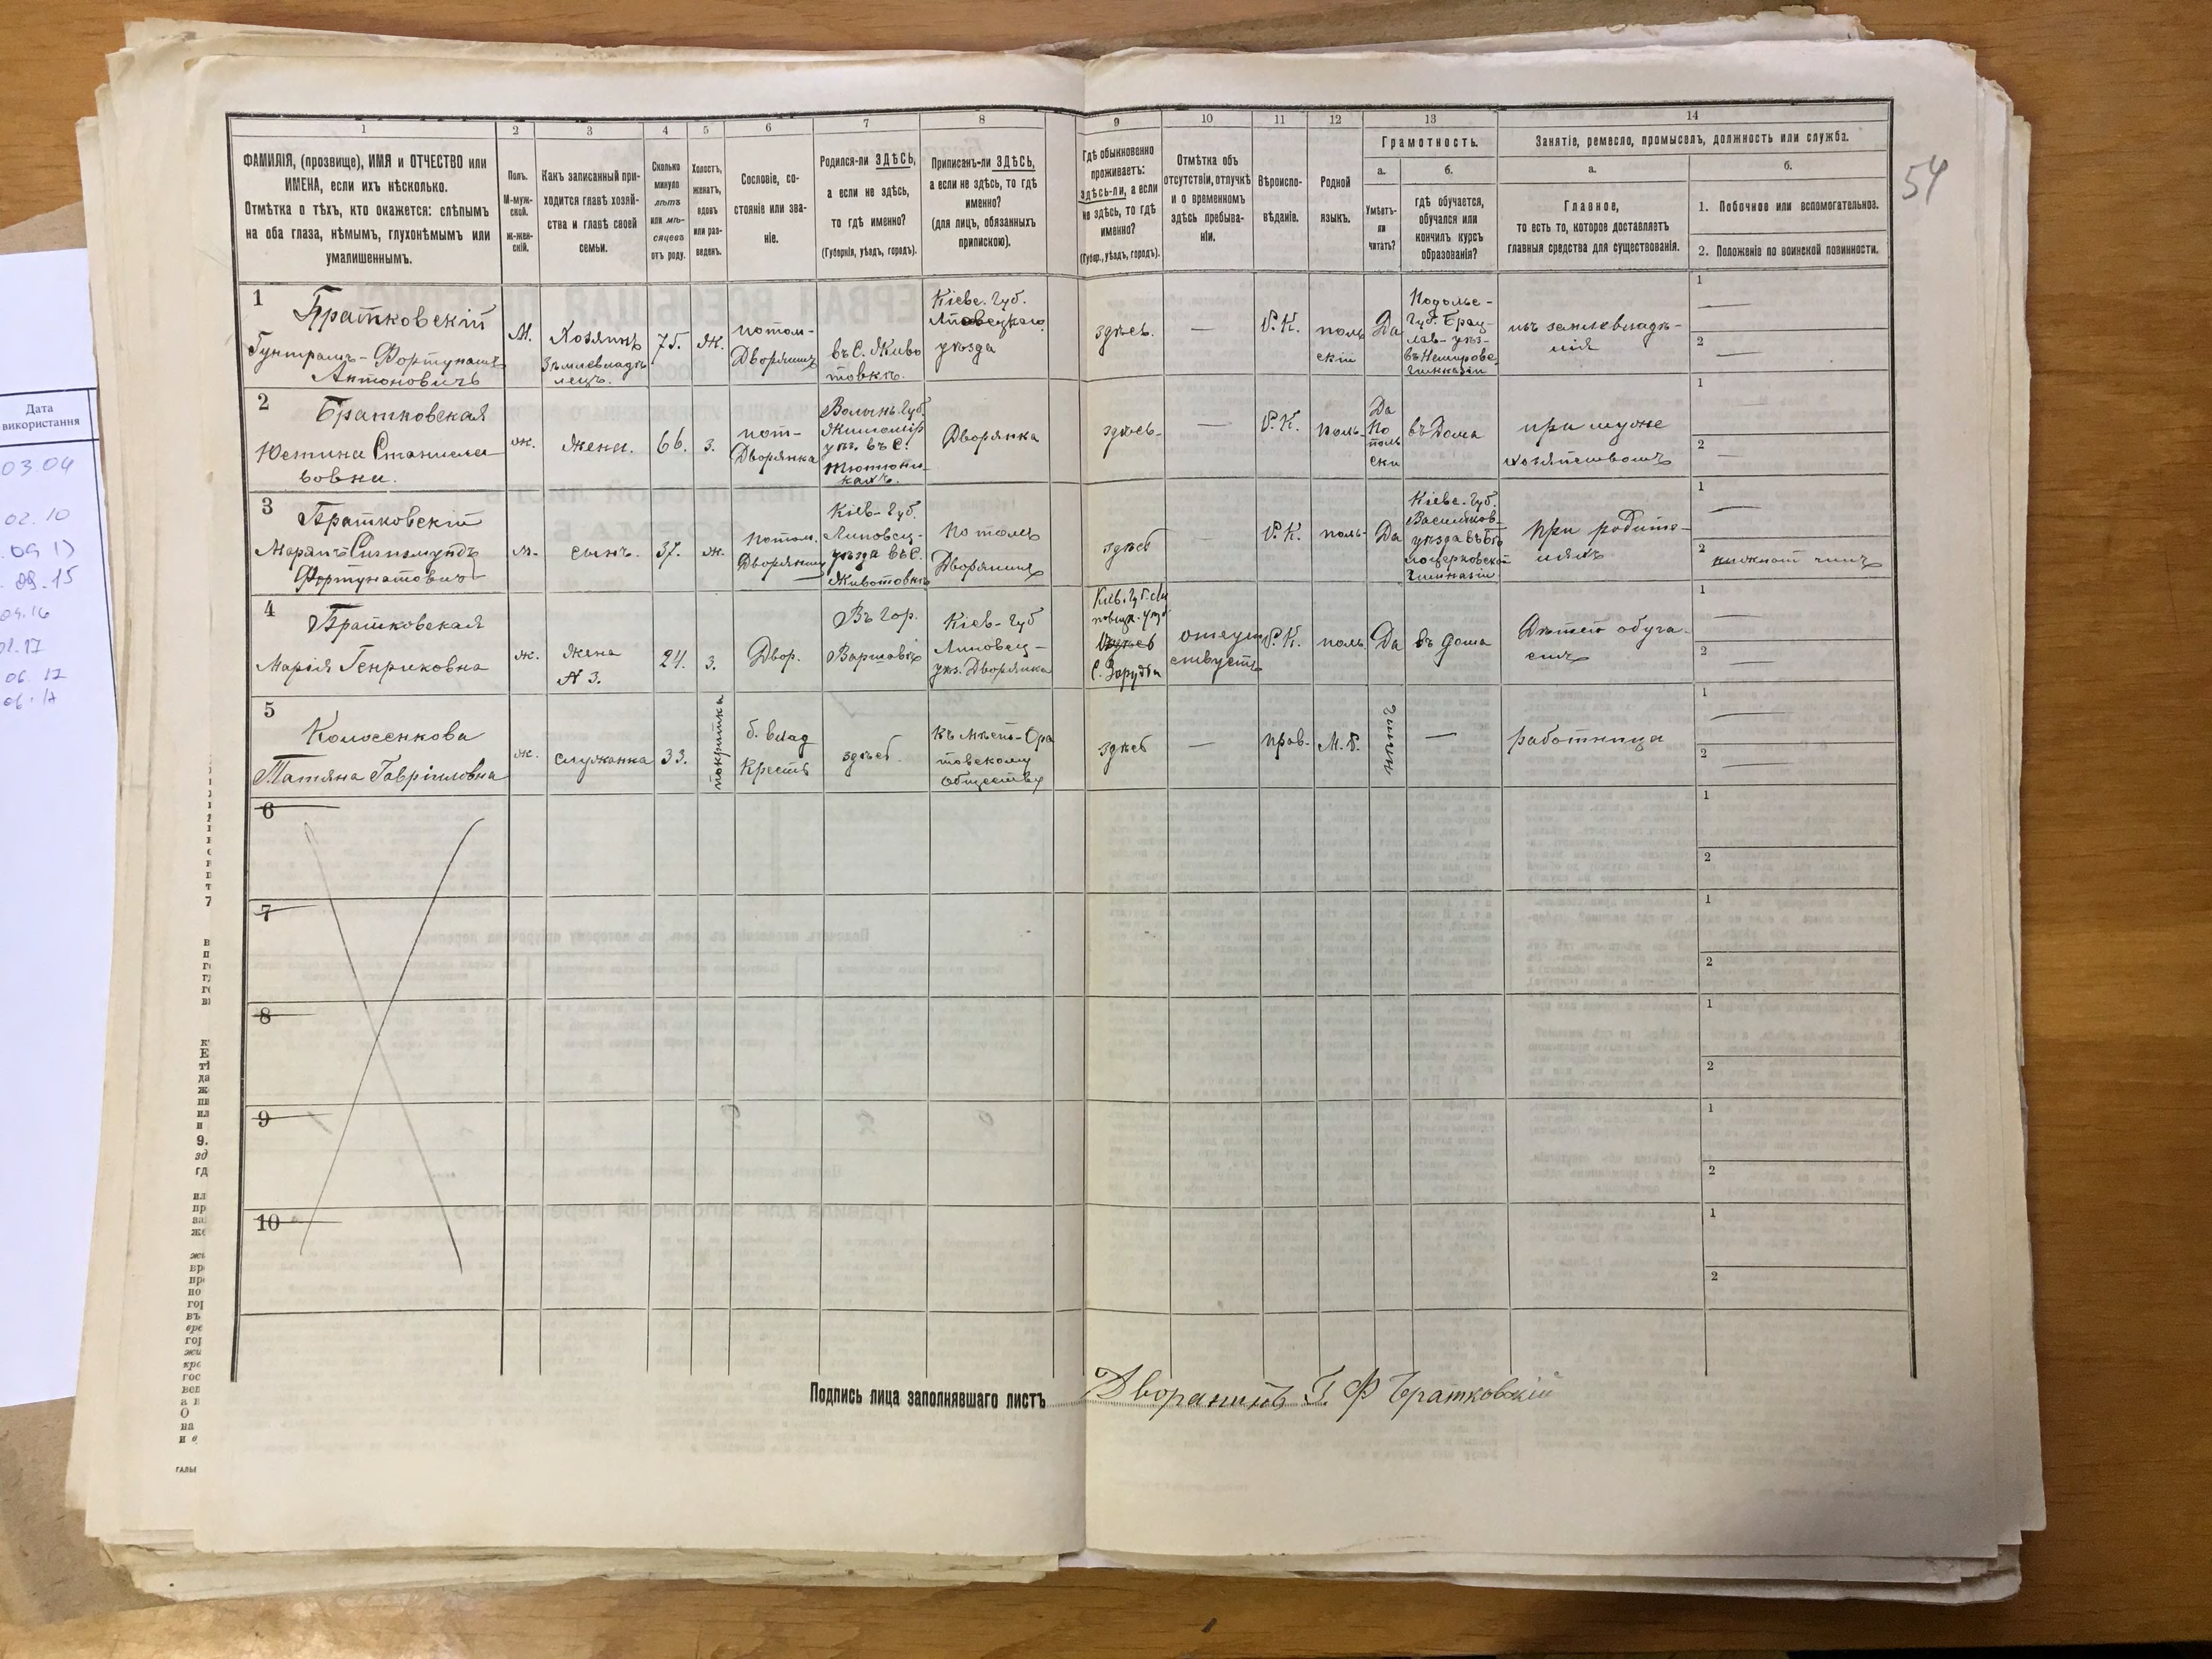 54
1
2
3
4
5
6
7
8
9
10
11
12
13
14
ФАМИЛІЯ, (прозвище), ИМЯ и ОТЧЕСТВО или
ИМЕНА, если ихъ нѣсколько.
Отмѣтка о тѣхъ, кто окажется: слѣпымъ
на оба глаза, нѣмымъ, глухонѣмымъ или
умалишеннымъ.
Полъ.
М-муж-
ской.
Ж-жен-
скій.
Какъ записанный при-
ходится главѣ хозяй-
ства и главѣ своей
семьи.
Сколько
минуло
лѣтъ
или мѣ-
сяцевъ
отъ роду.
Холостъ,
женатъ,
вдовъ
или раз-
веденъ.
Сословіе, со-
стояніе или зва-
ніе.
Родился-ли ЗДѢСЬ,
а если не здѣсь,
то гдѣ именно?
(Губернія, уѣздъ, городъ).
Приписанъ-ли ЗДѢСЬ,
а если не здѣсь, то гдѣ
именно?
(для лицъ, обязанныхъ
припискою).
Гдѣ обыкновенно
проживаетъ:
здѣсь-ли, а если
не здѣсь, то гдѣ
именно?
(Губер., уѣздъ, городъ).
Отмѣтка объ
отсутствіи, отлучкѣ
и о временномъ
здѣсь пребыва-
ніи.
Вѣроиспо-
вѣданіе.
Родной
языкъ.
Грамотность.
а.
Умѣетъ-
ли
читать?
б.
гдѣ обучается,
обучался или
кончилъ курсъ
образованія?
Занятіе, ремесло, промыселъ, должность или служба.
а.
Главное,
то есть то, которое доставляетъ
главныя средства для существованія.
б.
1. Побочное или вспомогательное.
2. Положеніе по воинской повинности.
1
Братковскій
Гунтрамъ-Фортунатъ
Антоновичъ
М.
Хозяинъ
Землевладѣ
лецъ.
75.
Ж.
потом-
Дворянинъ
въ С. Живо
товкѣ.
Кіевс. Губ.
Липовецкаго
уѣзда
здѣсь.
—
Р. К.
поль
скій
Да
Подольс-
Губ. Брац-
лав- уѣз-
въ Немирове.
Гимназіи
изъ землевладѣ-
нія
1 —
2 —
2
Братковская
Юстина Станисла
вовна.
ж.
жена.
66.
З.
пот-
Дворянка
Волынь. Губ.
Житомір
уѣз. въ С.
Тютюни-
кахъ.
Дворянка
здѣсь-
—
Р. К.
поль-
Да
По
поль
ски
въ Дома
при муже
хозяйствомъ
1 —
2 —
3
Братковскій
Маріанъ Сигизмундъ
Фортунатовичъ
м.
сынъ.
37.
ж.
потом.
Дворянинъ
Кіев- Губ.
Липовец-
уѣзда въ С.
Животовкѣ
Потомъ
Дворянинъ
здѣсь
Р. К.
поль-
Да
Кіевс. Губ.
Васильков-
уѣзда въ Бѣ
лоцерковской
Гимназіи
При родите-
ляхъ
1 —
2
4
Братковская
Марія Генриковна
ж.
Жена
N 3.
24.
З.
Двор.
Въ гор.
Варшавѣ
Кіев- Губ
Липовец-
уѣз. Дворянка
Кіев. Губ. Ли
повец- уѣзд
С. Зарубы
отсут
ствуетъ
Р. К.
поль.
Да
въ Дома
Дѣтей обуча-
етъ
1 —
2 —
5
Колосенкова
Татяна Гавріиловна
ж.
служанка
33.
покрытка
б. влад
Крестъ
здѣсь.
здѣсь
—
прав-
М. Р.
нѣтъ
—
работница
1 —
2 —
6
1
2
7
1
2
8
1
2
9
1
2
10
1
2
Подпись лица заполнявшаго листъ
Дворянинъ Г. Ф Братковскій
Дата
використання
03.04
02.10
04.16
06.17